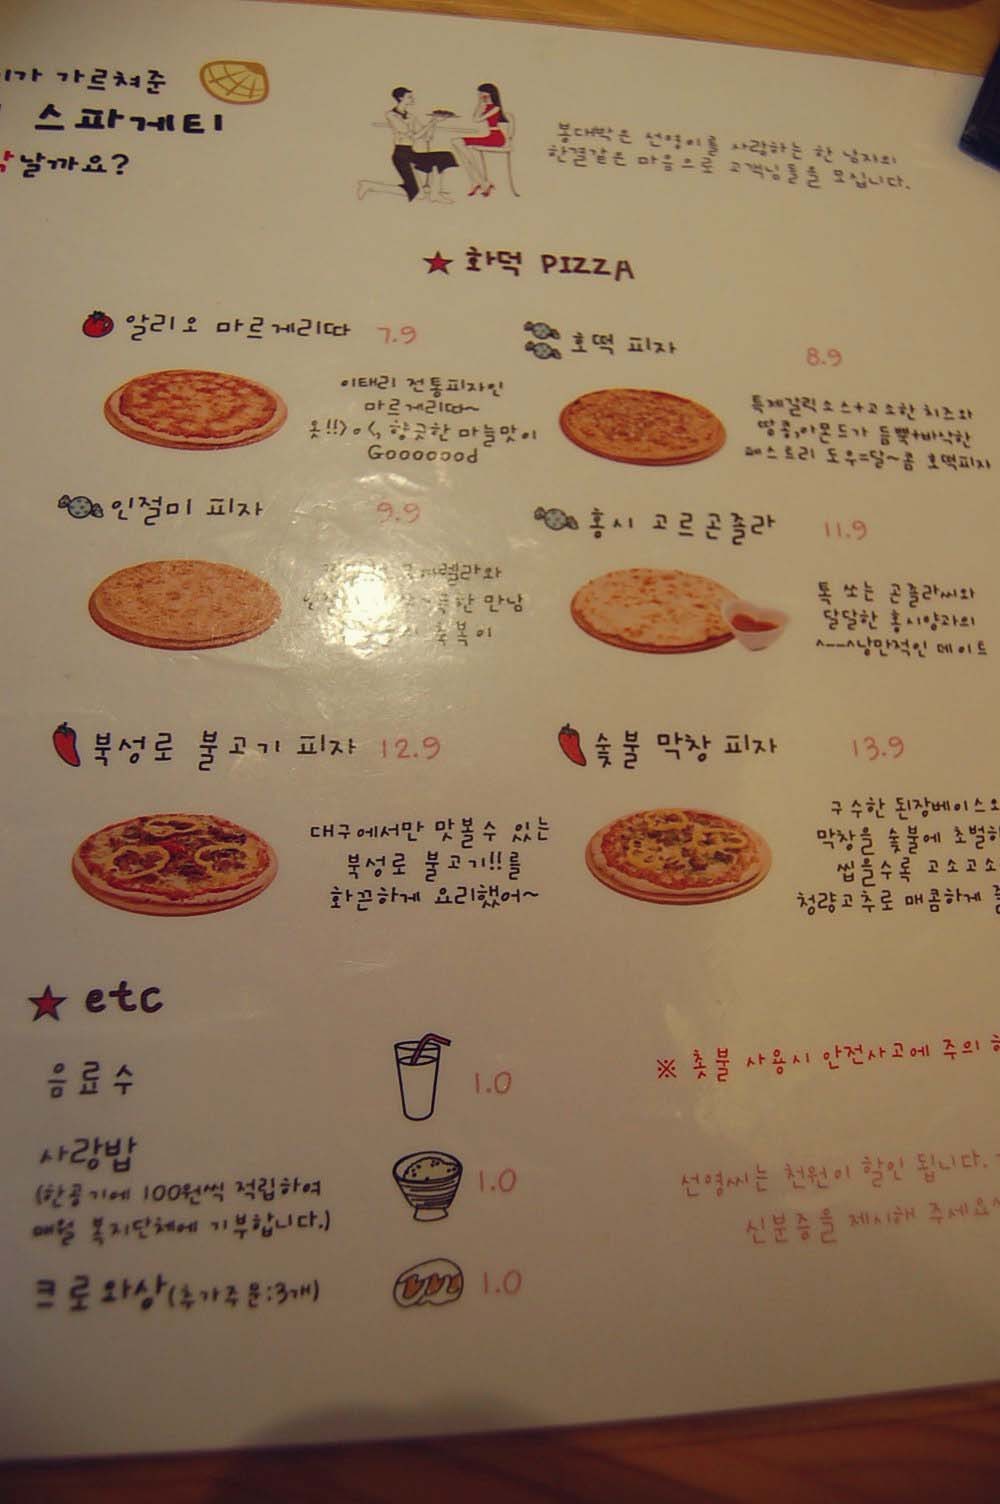 가 가르쳐준
스파게티
날까요?
봉대박은 선영이를 사랑하는 한 남자의
한결같은 마음으로 고객님들을 모십니다.
★ 화덕 PIZZA
알리오 마르게리따 7.9
이태리 전통피자인
마르게리따~
옷!!>o<, 향긋한 마늘맛이
Gooooood
호떡 피자 8.9
특제갈릭소스+고소한 치즈와
땅콩,아몬드가 듬뿍+바삭한
페스트리 도우=달~콤 호떡피자
인절미 피자 9.9
한 만남
축복이
홍시 고르곤졸라 11.9
톡 쏘는 곤졸라씨와
달달한 홍시양과의
^---^낭만적인 데이트
북성로 불고기 피자 12.9
대구에서만 맛볼수 있는
북성로 불고기!!를
화끈하게 요리했어~
숯불 막창 피자 13.9
구수한 된장베이스
막창을 숯불에 초벌
씹을수록 고소고소
청량고추로 매콤하게
★ etc
음료수 1.0
사랑밥 1.0
(한공기에 100원씩 적립하여
매월 복지단체에 기부합니다.)
크로와상(추가주문:3개) 1.0
※ 촛불 사용시 안전사고에 주의
선영씨는 천원이 할인 됩니다.
신분증을 제시해 주세요